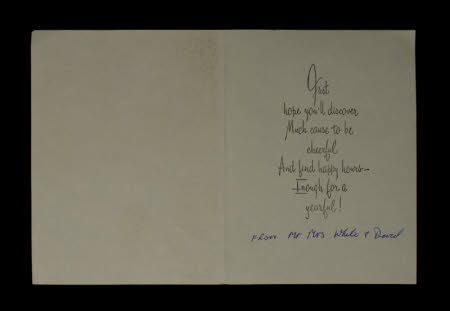 Just
hope you'll discover
Much cause to be
cheerful
And find happy hours—
Enough for a
yearful!
From Mr Mrs White & David